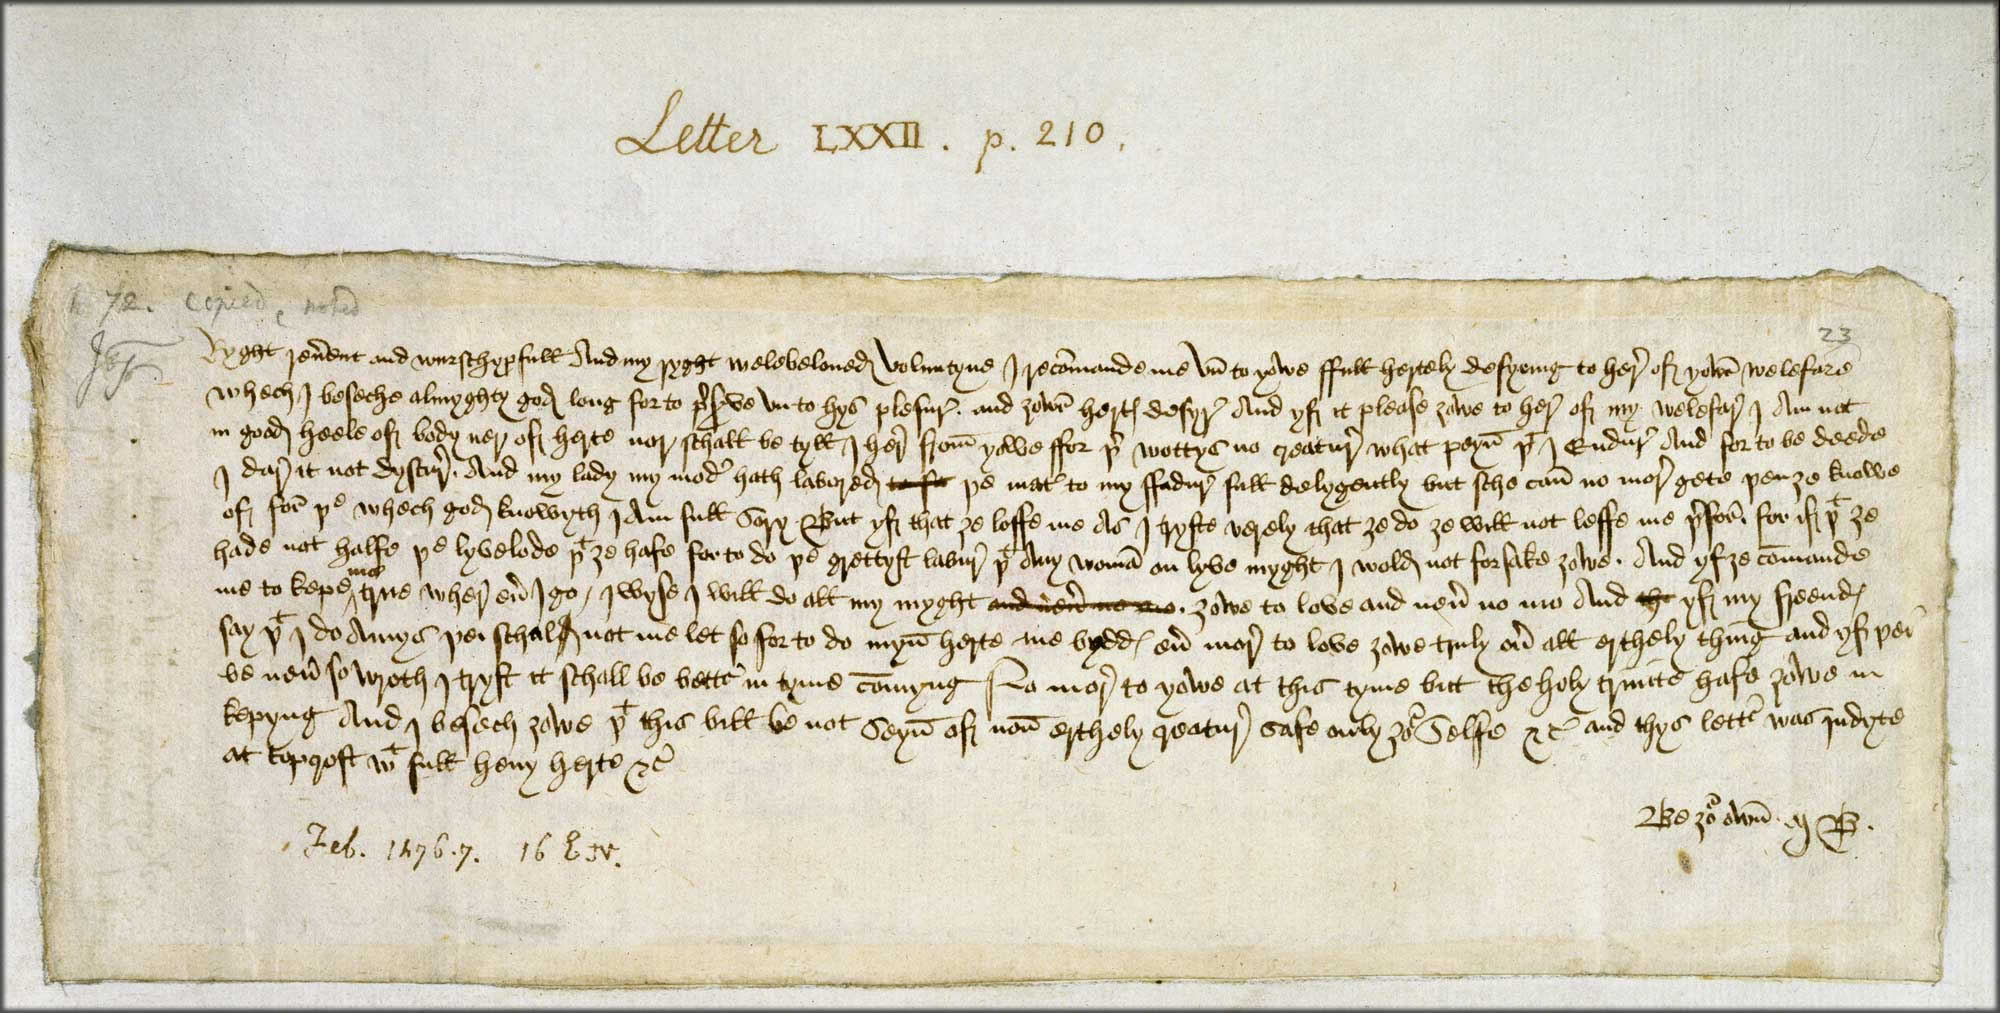 Letter LXXII. p. 210.
72. copied, noted
23
Ryght reu̅ent and wurschypfull And my ryght welebeloued Voluntyne I reco̅mande me vn to yowe ffull hertely desyring to here of yowr welefare
whech I beseche almyghty god long for to pʳsʳve vn to hys plesur. and ȝowr hertis desyr And yf it please ȝowe to here of my welefar I Am not
in good heele of body ner of herte nor schall be tyll I her from yowe ffor þʳ wottys no creatur what peyn þᵗ I Endur And for to be deede
I dar it not dyscur. And my lady my modʳ hath labored to fa þe matʳ to my ffadur full delygently but sche can no mor gete þen ȝe knowe
of for þᵉ whech god knowyth I Am full Sory. But yf that ȝe loffe me As I tryste verely that ȝe do ȝe will not leffe me þʳfor. for if þᵗ ȝe
hade not halfe þe lyvelode þᵗ ȝe hafe for to do þe grettyst labur þᵗ Any woma̅ on lyve myght I wold not forsake ȝowe. And yf ȝe co̅mande
me to kepe me true wher eu̅ I go / I wyse I will do all my myght and neu̅ no mo. ȝowe to love and neu̅ no mo And the yf my freendis
say þᵗ I do Amys þei schal not me let so for to do myn herte me byddis eu̅ mor to love ȝowe truly ou̅ all erthely thing and yf þei
be neu̅ so wroth I tryst it schall be bettʳ in tyme co̅myng No mor to yowe at this tyme but the holy trinite hafe ȝowe in
kepyng And I besech ȝowe þᵗ this bill be not Seyn of non erthely creatur safe only ȝoʳ Selfe &c and thys lettʳ was indyte
at topcroft wᵗ full heuy herte &c
Be ȝoʳ own M B.
Feb. 1476.7. 16 E IV.